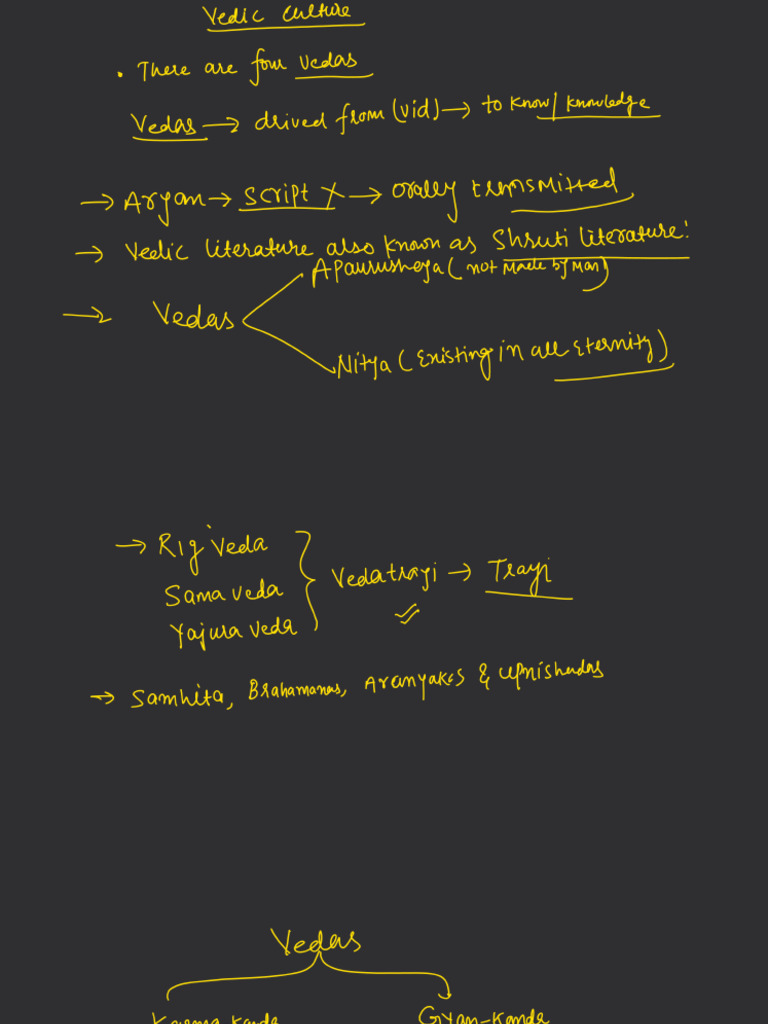 Vedic Culture
• There are four Vedas
Vedas → drived from (vid) → to know/knowledge
→ Aryan → script X → orally transmitted
→ Vedic literature also known as Shruti literature!
Apaurusheya (not made by man)
→ Vedas
Nitya (Existing in all Eternity)
→ Rig Veda
Sama veda
Yajura veda
Vedatrayi → Trayi
→ Samhita, Brahamanas, Aranyakas & upnishadas
Vedas
Karma-Kanda
Gyan-Kanda